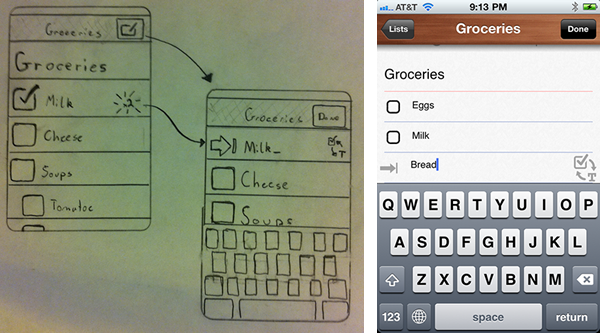 Groceries
Groceries
Milk
Cheese
Soups
Tomatoe
Groceries Done
Milk_
T
Cheese
Soups
AT&T 9:13 PM
Lists Groceries Done
Groceries
Eggs
Milk
Bread
T
Q W E R T Y U I O P
A S D F G H J K L
Z X C V B N M
123 space return